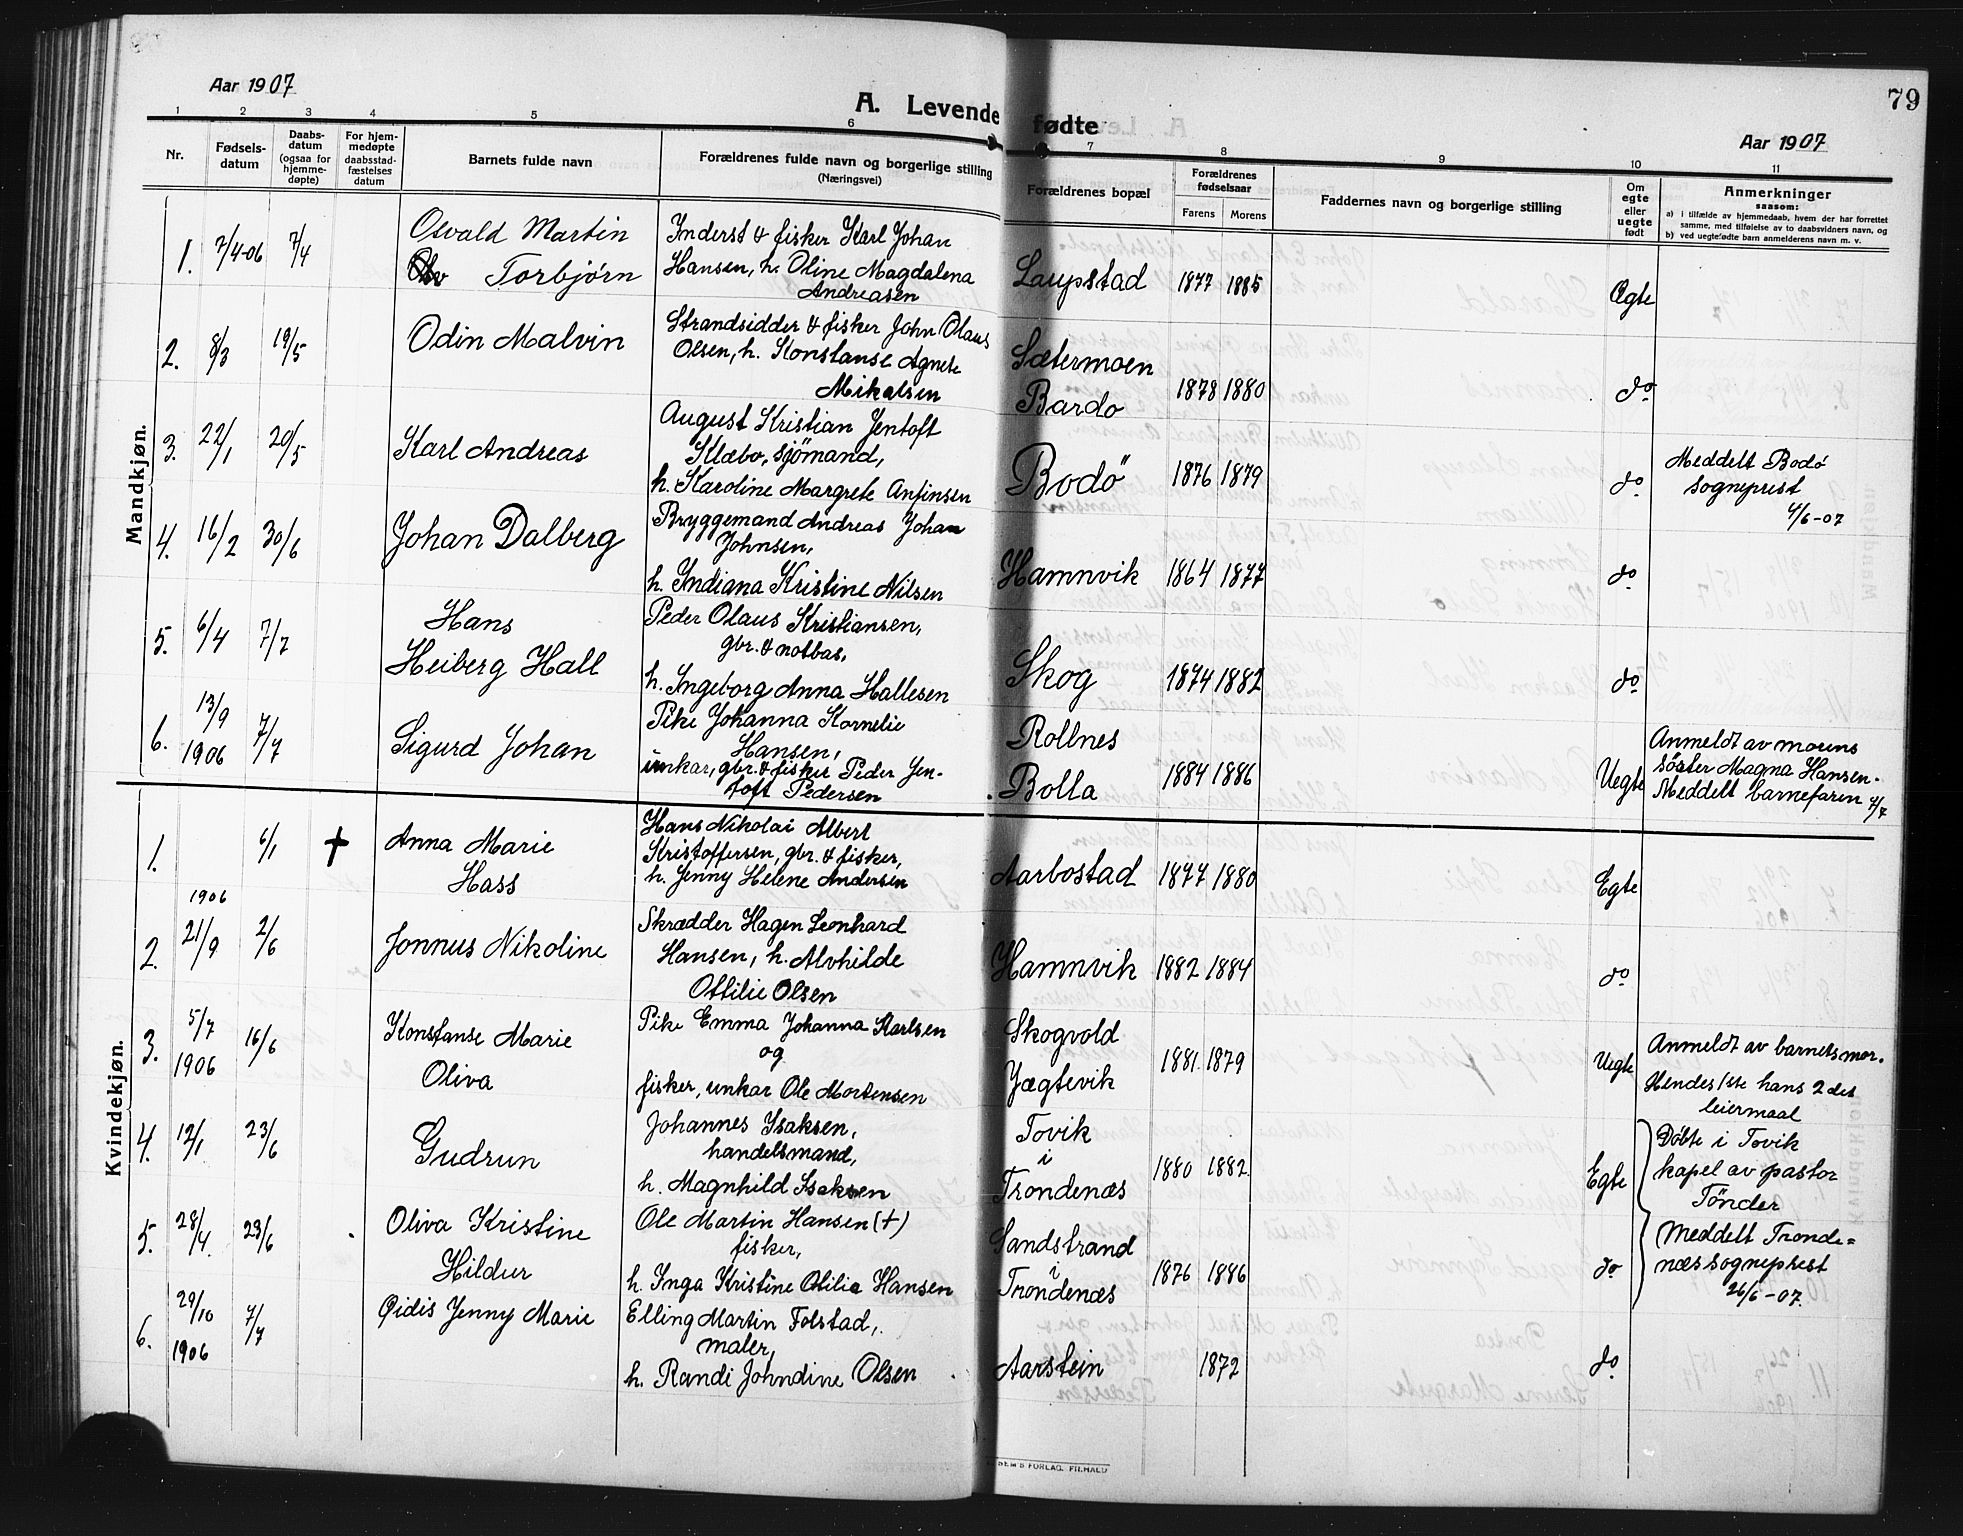 Aar 1907
A. Levende fødte
79
Aar 1907
1 2 3 4 5 6 7 8 9 10 11
Nr.
Fødsels-
datum
Daabs-
datum
(ogsaa for
hjemme-
døpte)
For hjem-
medøpte
daabsstad-
fæstelses
datum
Barnets fulde navn
Forældrenes fulde navn og borgerlige stilling
(Næringsvei)
Forældrenes bopæl
Forældrenes
fødselsaar
Farens Morens
Faddernes navn og borgerlige stilling
Om
egte
eller
uegte
født
Anmerkninger
saasom:
a) i tilfælde av hjemmedaab, hvem der har forrettet
samme, med tilføielse av to daabsvidners navn, og
b) ved uegtefødte barn anmelderens navn m. v.
Mandkjøn.
1. 7/4-06 7/4
Osvald Martin
Torbjørn
Inderst & fisker Karl Johan
Hansen, h. Oline Magdalena
Andreasen
Laupstad 1877 1885 Ægte
2. 8/3 19/5
Odin Malvin
Strandsidder & fisker John Olaus
Olsen, h. Konstanse Agnete
Mikalsen
Sætermoen
Bardo 1878 1880 do
3. 22/1 20/5
Karl Andreas
August Kristian Jentoft
Klæbo, sjömand,
h. Karoline Margrete Anfinsen
Bodö 1876 1879 do
Meddelt Bodö
sogneprest
4/6-07
4. 16/2 30/6
Johan Dalberg
Bryggemand Andreas Johan
Johnsen,
h. Indiana Kristine Nilsen
Hamnvik 1864 1877 do
5. 6/4 7/7
Hans
Heiberg Hall
Peder Olaus Kristiansen,
gbr. & notbas,
h. Ingeborg Anna Hallesen
Skog 1874 1882 do
6. 13/9
1906 7/7
Sigurd Johan
Pike Johanna Kornelie
Hansen,
unkar, gbr. & fisker Peder Jen-
toft Pedersen
Rollnes
Bolla 1884 1886 Uegte
Anmeldt av morens
söster Magna Hansen.
Meddelt barnefaren 4/7
Kvindekjøn.
1. 1906 6/1 +
Anna Marie
Hass
Hans Nikolai Albert
Kristoffersen, gbr. & fisker,
h. Jenny Helene Andersen
Aarbostad 1877 1880 Egte
2. 21/9 2/6
Jonnus Nikoline
Skrædder Hagen Leonhard
Hansen, h. Alvhilde
Ottilie Olsen
Hamnvik 1882 1884 do
3. 5/7
1906 16/6
Konstanse Marie
Oliva
Pike Emma Johanna Karlsen
og
fisker, unkar Ole Mortensen
Skogvold
Jægtevik 1881 1879 Uegte
Anmeldt av barnets mor.
Hendes 1ste hans 2det
leiermaal
4. 12/1 23/6
Gudrun
Johannes Isaksen,
handelsmand,
h. Magnhild Isaksen
Tovik
i
Trondenæs 1880 1882 Egte
Döbte i Tovik
kapel av pastor
Tönder
5. 28/4 23/6
Oliva Kristine
Hildur
Ole Martin Hansen (+)
fisker,
h. Inga Kristine Otilie Hansen
Sandstrand
i
Trondenæs 1876 1886 do
Meddelt Tronde=
næs sogneprest
26/6-07.
6. 29/10
1906 7/7
Eidis Jenny Marie
Elling Martin Folstad,
maler,
h. Randi Johndine Olsen
Aarstein 1872 do